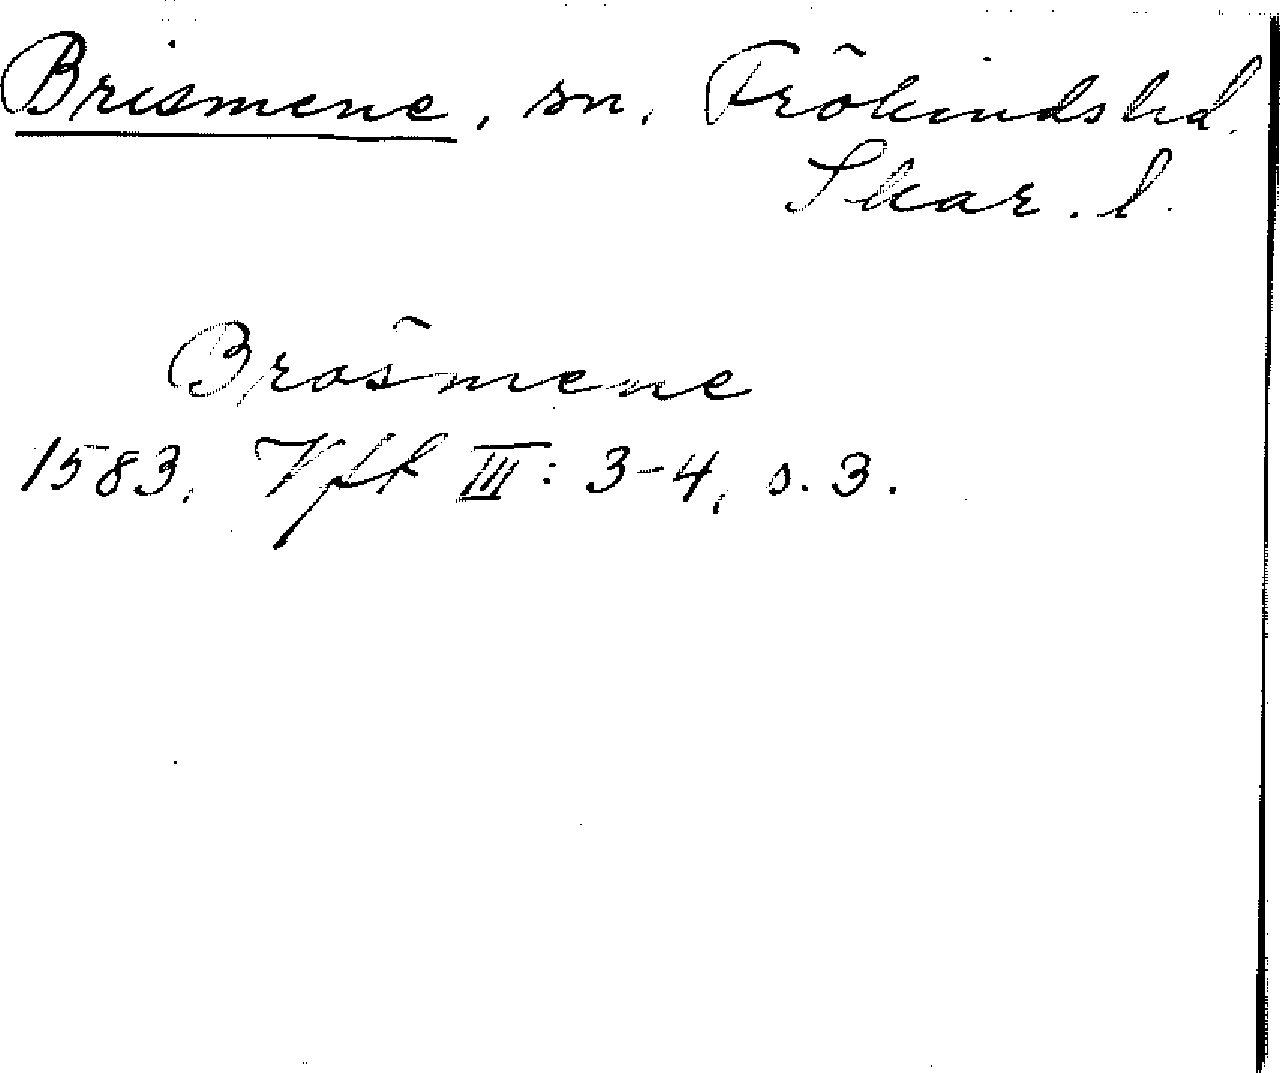 Brismene, sn, Frökinds hd.
Skar. l.
Brösmene
1583. Vft III: 3-4, s. 3.